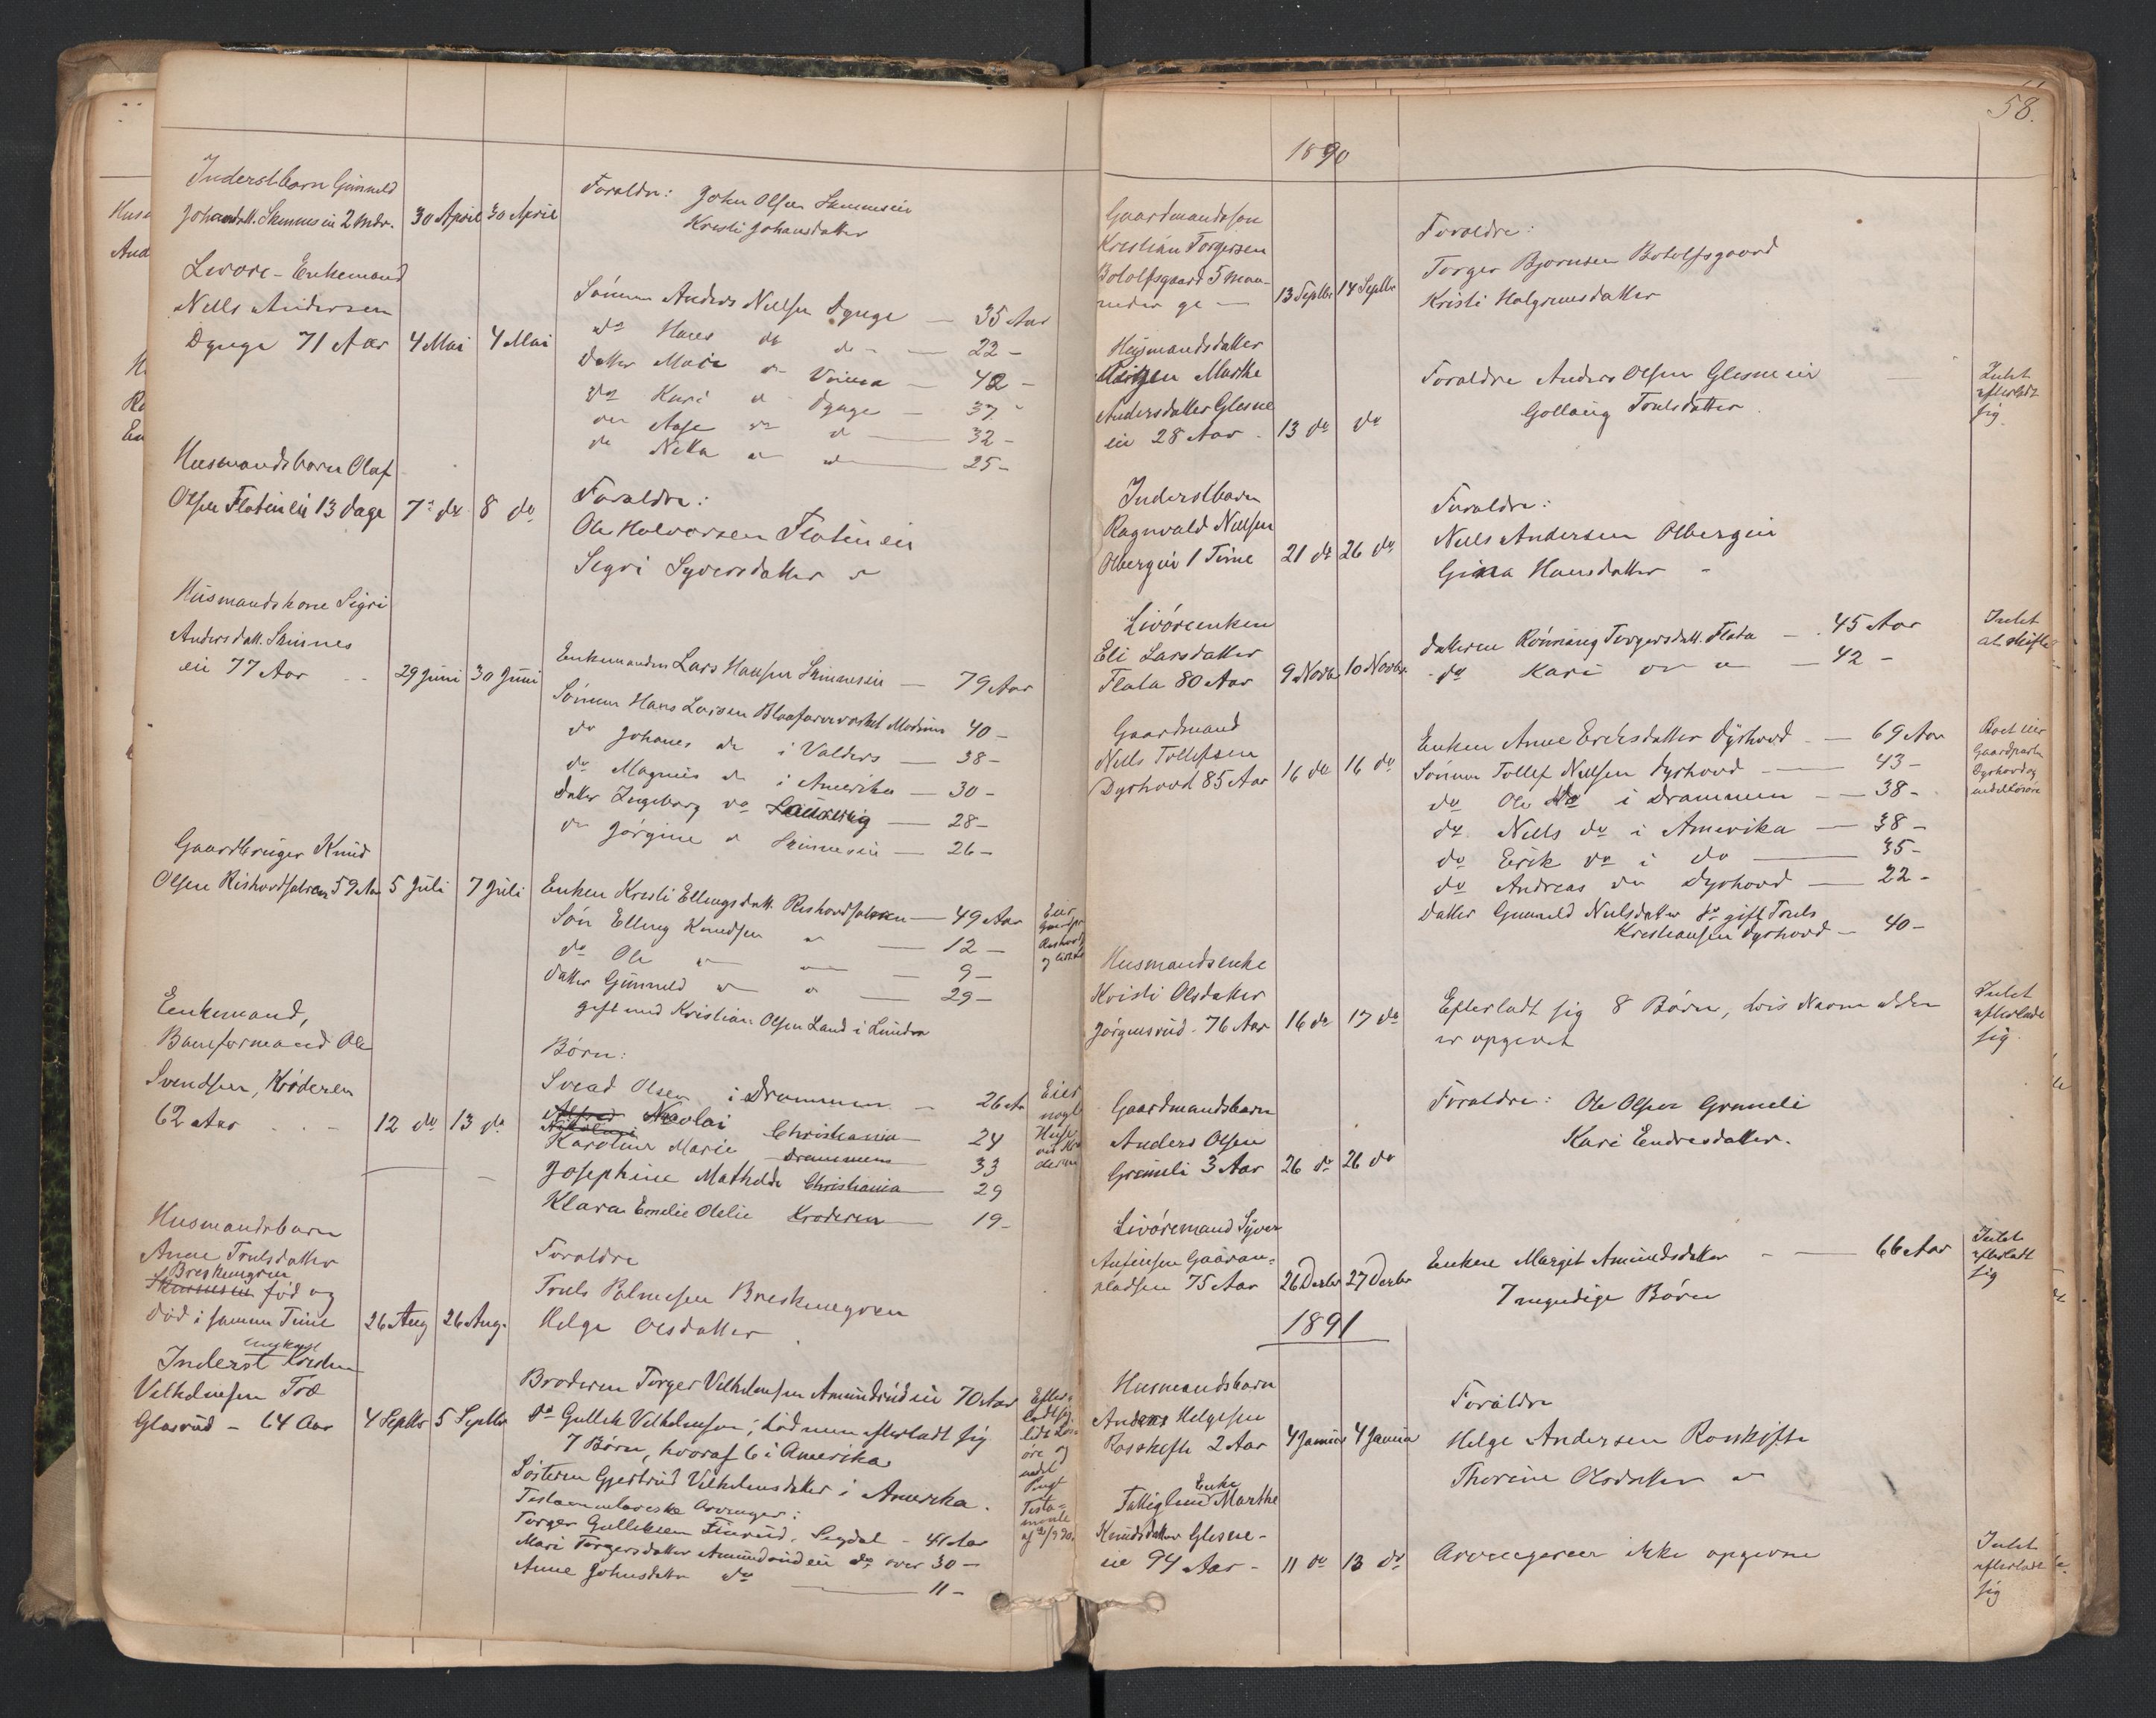 Inderstbarn Gunneld
Johansdatt. Skinnes ei 2 Mdr. 30 April 30 April
Foraldre: John Olsen Skinnesei
Kristi Johansdatter
Livøre-Enkemand
Nills Andersen
Dynge 71 Aar 4 Mai 4 Mai
Sønnen Anders Nilsen Dynge — 35 Aar
do Hans do do — 22 —
Datter Mari do — 42 —
do Kari do Dynge — 37 —
do Aase do do — 32 —
do Nilla do do — 25 —
Husmandsbarn Olaf
Olsen Flatin ei 13 Dage 7de do 8 do
Foraldre:
Ole Halvorsen Flatin ei
Segri Syversdatter
Husmandskone Sigri
Andersdatt. Skinnes
ei 77 Aar 29 Juni 30 Juni
Enkemanden Lars Hansen Skinnesei — 79 Aar
Sønnen Hans Larsen Blaafarveverket Modum 40 —
do Johanes do i Valders — 38 —
do Magnus do i Amerika — 30 —
Datter Ingeborg do — 28 —
do Jørgine do Skinnesei — 26 —
Gaardbruger Knud
Olsen Rishovd 59 Aar 5 Juli 7 Juli
Enken Kristi Ellingsdatt. — 49 Aar
Søn Elling Knudsen — 12 —
do Ole — 9 —
Datter Gunneld — 29 —
gift med Kristian Olsen Land i
Enkemand,
Baneformand Ole
Svendsen, Krøderen
62 Aar 12 do 13 do
Børn:
Svend Olsen i Drammen — 26 Aar
Alfred Nicolai Christiania — 24
Karoline Marie Drammen 33
Josephine Mathilde Christiania 29
Klara Emelie Otelie Krøderen 19 —
Eier
Huse
Husmandsbarn
Anne Trulsdatter
Breskemoen
Skinnesei fød og
død i samme Time 26 Aug 26 Aug.
Foraldre
Truls Palmesen
Helge Olsdatter
ungkarl
Inderst Kristen
Velhelmsen Træ
Glasrud — 64 Aar 4 Septbr 5 Septbr
Broderen Torger Velhelmsen Amundrudei 70 Aar
do Gullik Velhelmsen, død men efterladt sig
7 Børn, hvoraf 6 i Amerika
Søsteren Gjertrud Velhelmsdatter i Amerika.
Testamentariske Arvinger:
Torger Gulliksen Finrud, Segdal — 41 Aar
Mari Torgersdatter Amundrudei do over 30 —
Anne Johnsdatter do — 11 —
58.
1890
Gaardmandssøn
Kristian Torgersen
Botolfsgaard 5 Maa-
neder gl — 13 Septbr 14 Septbr
Foraldre:
Torger Bjornsen Botolfsgaard
Kristi Halgrimsdatter
Husmandsdatter
Marthe
Andersdatter Glesne
ei 28 Aar 13 do do
Foraldre Anders Olsen Glesneei
Gollaug Trulsdatter
Intet
efterladt
sig.
Inderstbarn
Ragnvald Nilsen
Olbergei 1 Time 21 do 26 do
Foraldre:
Nills Andersen Olbergei
Gina Hansdatter
Livøreenken
Eli Larsdatter
Flata 80 Aar 9 Novbr 10 Novbr.
Datteren Rønnaug Torgersdatt. Flata — 45 Aar
do Kari do — 42 —
Intet
at skifte
Gaardmand
Nills Tollefsen
Dyshovd 85 Aar 16 do 16 do
Enken Anne Ericksdatter Dyshovd — 69 Aar
Sønnen Tollef Nilsen Dyshovd — 43 —
do Ole do i Drammen — 38 —
do Nills do i Amerika — 38 —
do Erik do i do — 35 —
do Andreas do Dyshovd — 22 —
Datter Gunneld Nilsdatter do gift Truls
Kristiansen Dyshovd — 40 —
Boet eier
Gaardpart
Dyshovd og
endel Løsøre
Husmandsenke
Kristi Olsdatter
Jørgensrud 76 Aar 16 do 17 do
Efterladt sig 8 Børn, hvis Navne ikke
er opgivet
Intet
efterladt
sig.
Gaardmandsbarn
Anders Olsen
Grimeli 3 Aar 26 do 26 do
Foraldre: Ole Olsen Grimeli
Kari Endresdatter.
Livøremand Syver
Antensen Gaaran-
pladsen 75 Aar 26 Decbr 27 Decbr
Enken Margit Amundsdatter — 66 Aar
7 myndige Børn
Intet
efterladt
sig
1891
Husmandsbarn
Anders Helgesen
Roskifte 2 Aar 4 Januar 4 Januar
Foraldre
Helge Andersen Roskifte
Thorine Olsdatter
Enke
Fattiglem Marthe
Knudsdatter Glesne-
ei 94 Aar — 11 do 13 do
Arvinger ikke opgivne
Intet
efterladt
sig